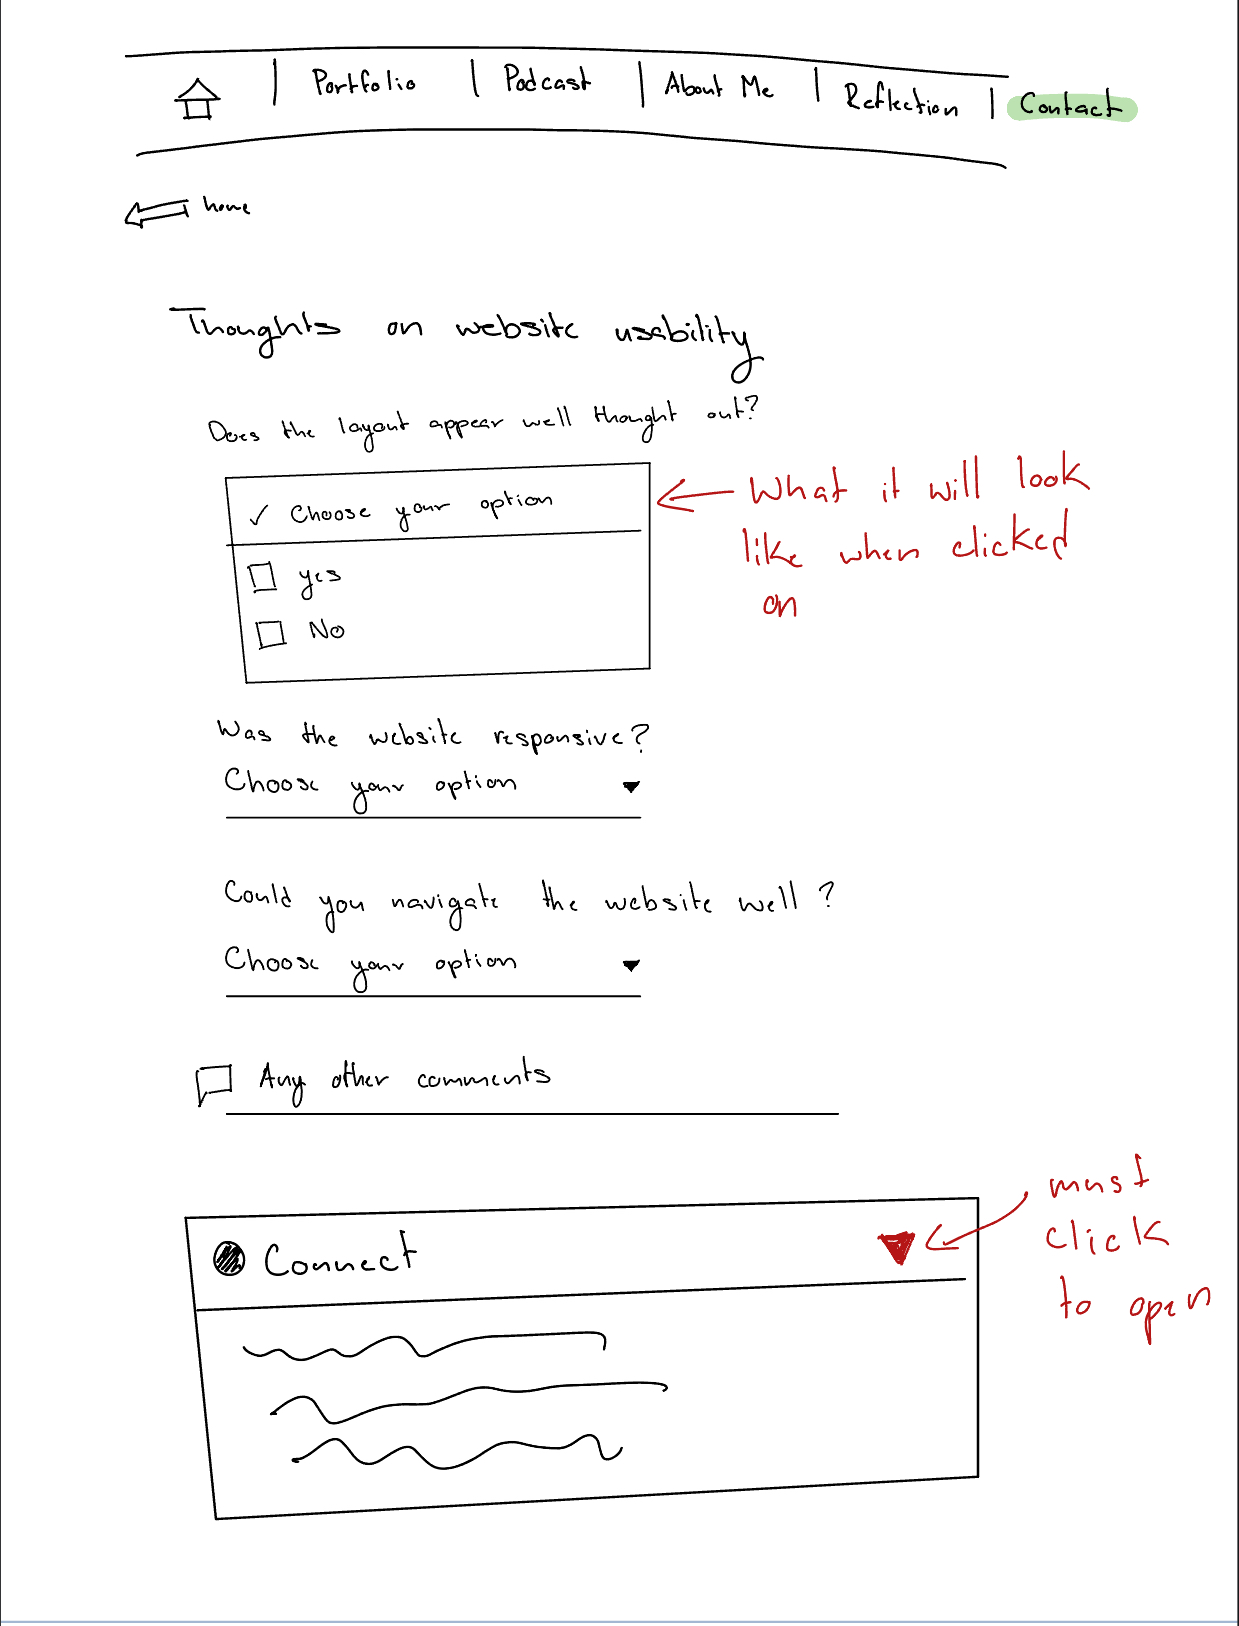 Portfolio | Podcast | About Me | Reflection | Contact
home
Thoughts on website usability
Does the layout appear well thought out?
✓ Choose your option
yes
No
What it will look
like when clicked
on
Was the website responsive?
Choose your option
Could you navigate the website well?
Choose your option
Any other comments
Connect
must
click
to open